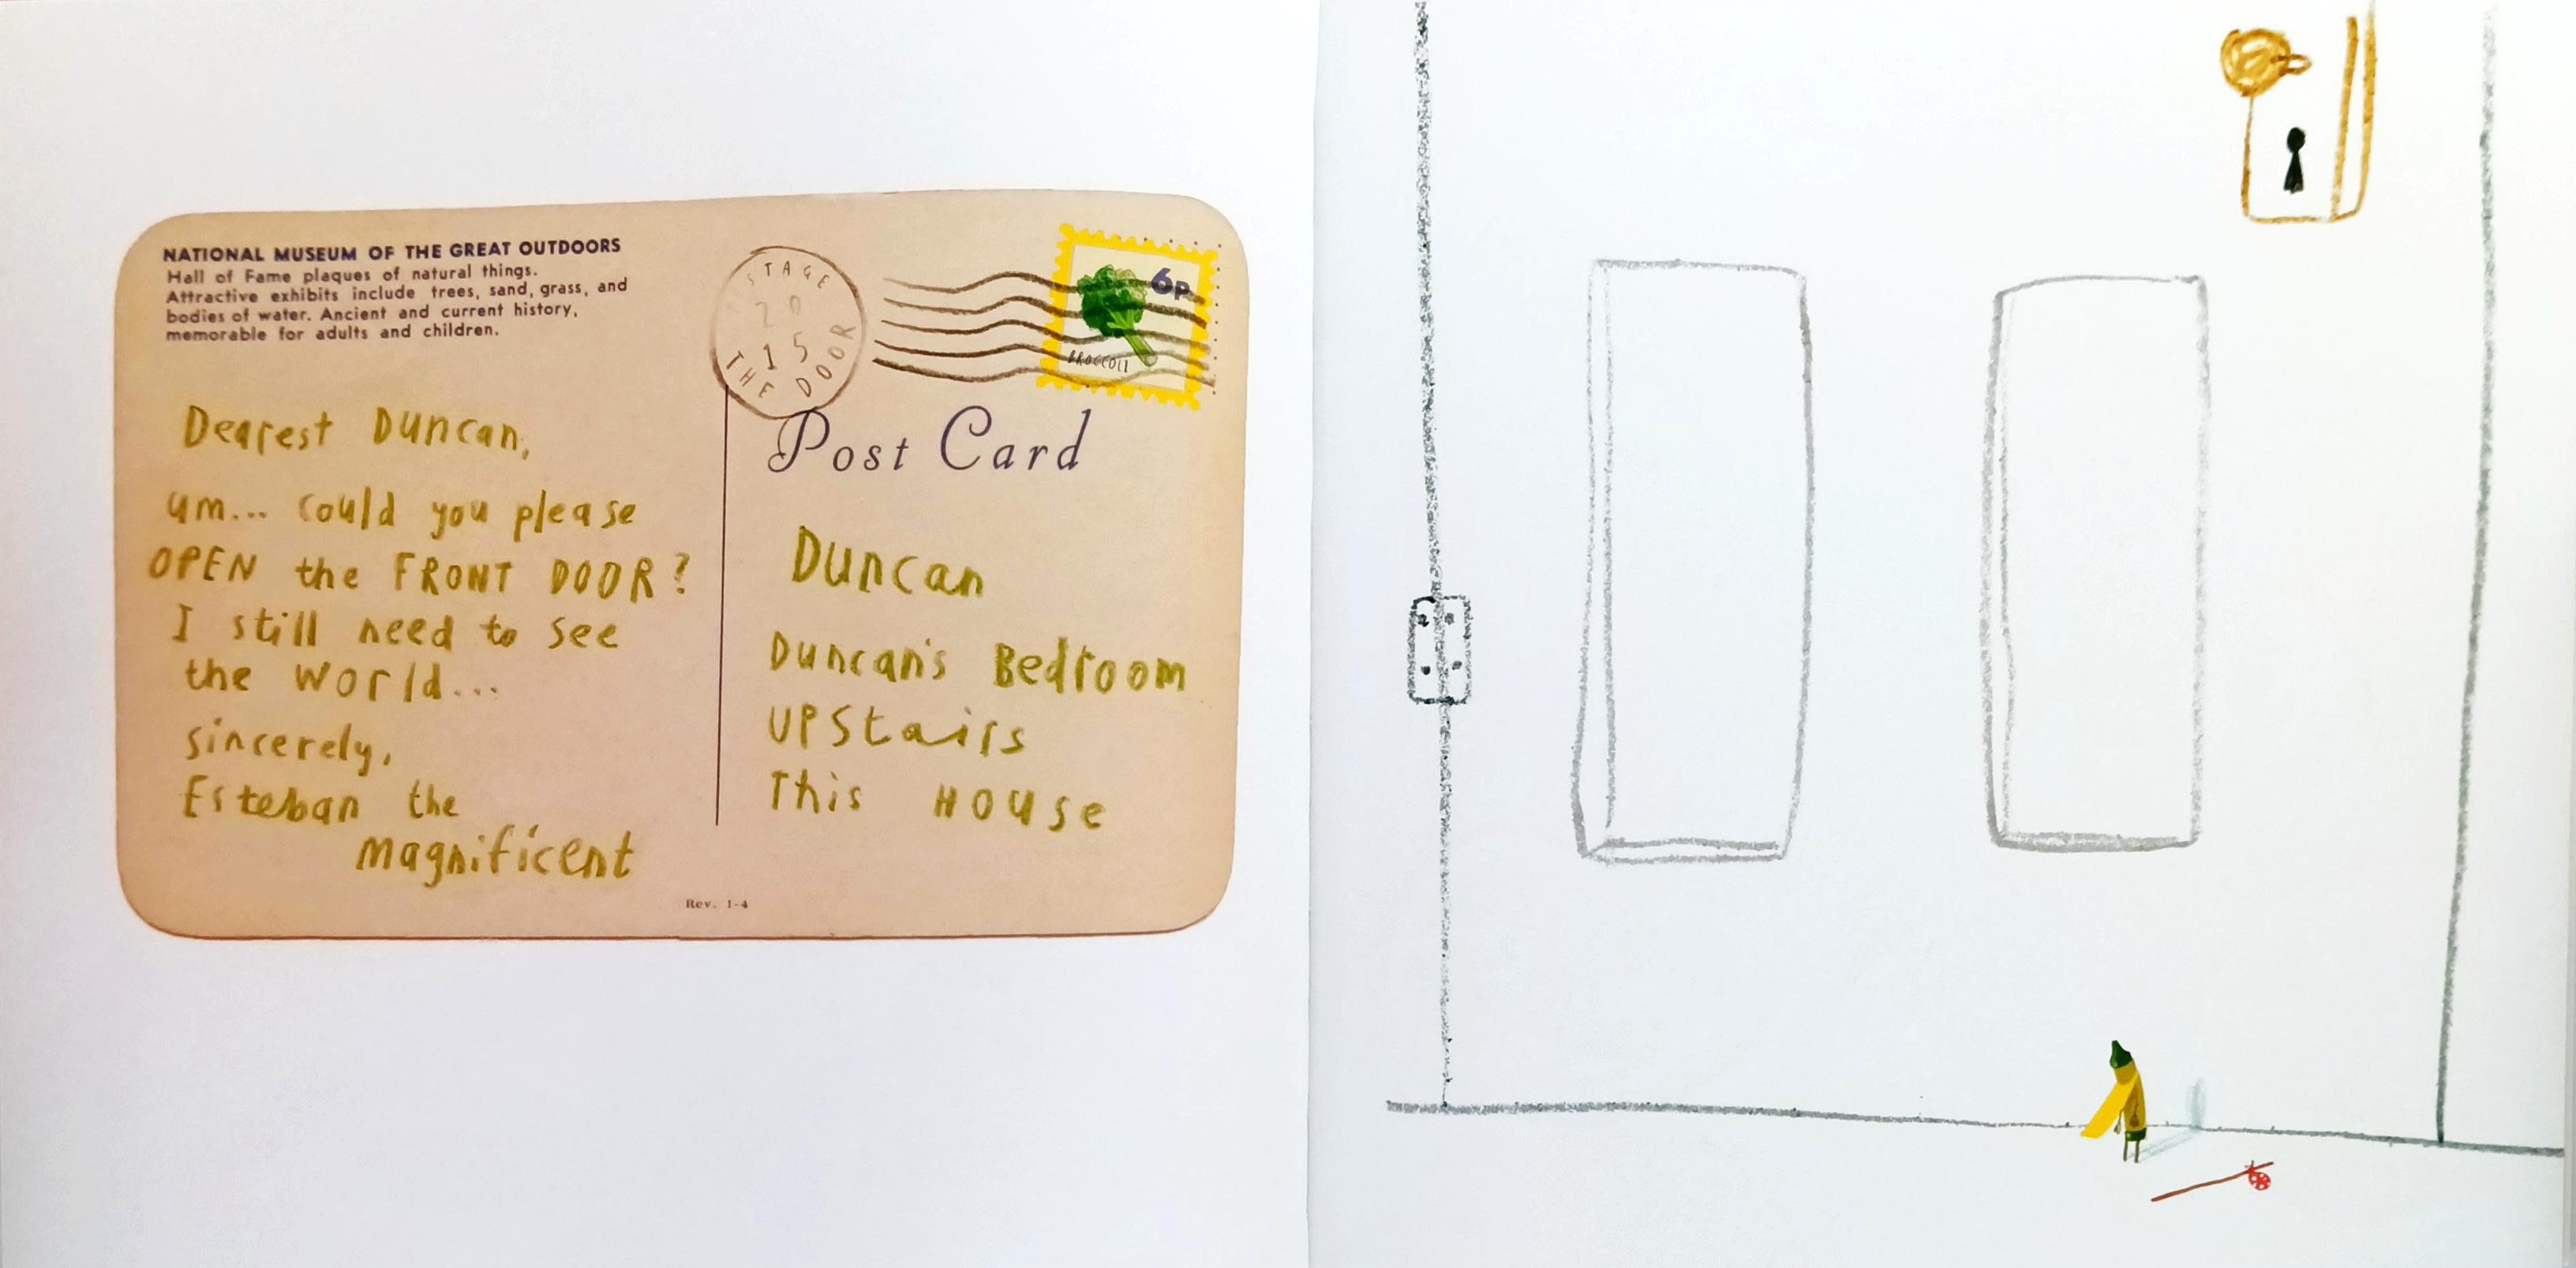 NATIONAL MUSEUM OF THE GREAT OUTDOORS
Hall of Fame plaques of natural things.
Attractive exhibits include trees, sand, grass, and
bodies of water. Ancient and current history,
memorable for adults and children.
Dearest Duncan,
um... could you please
OPEN the FRONT DOOR?
I still need to see
the world...
sincerely,
Esteban the
magnificent
STAGE
20
15
THE DOOR
6p
BROCCOLI
Post Card
Duncan
Duncan's Bedroom
UPStairs
This House
Rev. 1-4